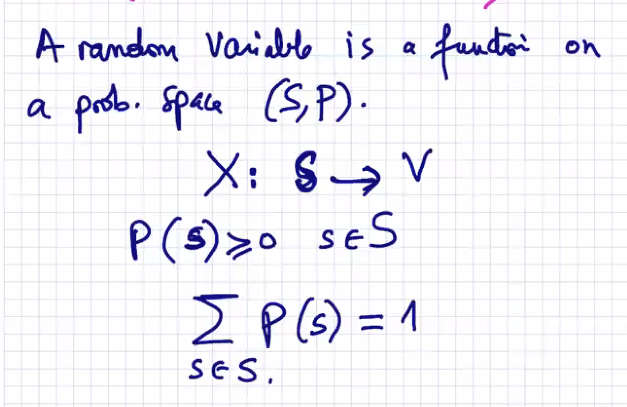 A random variable is a function on
a prob. space (S,P).
X: S → V
P(s)⩾0 s∈S
∑ P(s) = 1
s∈S.